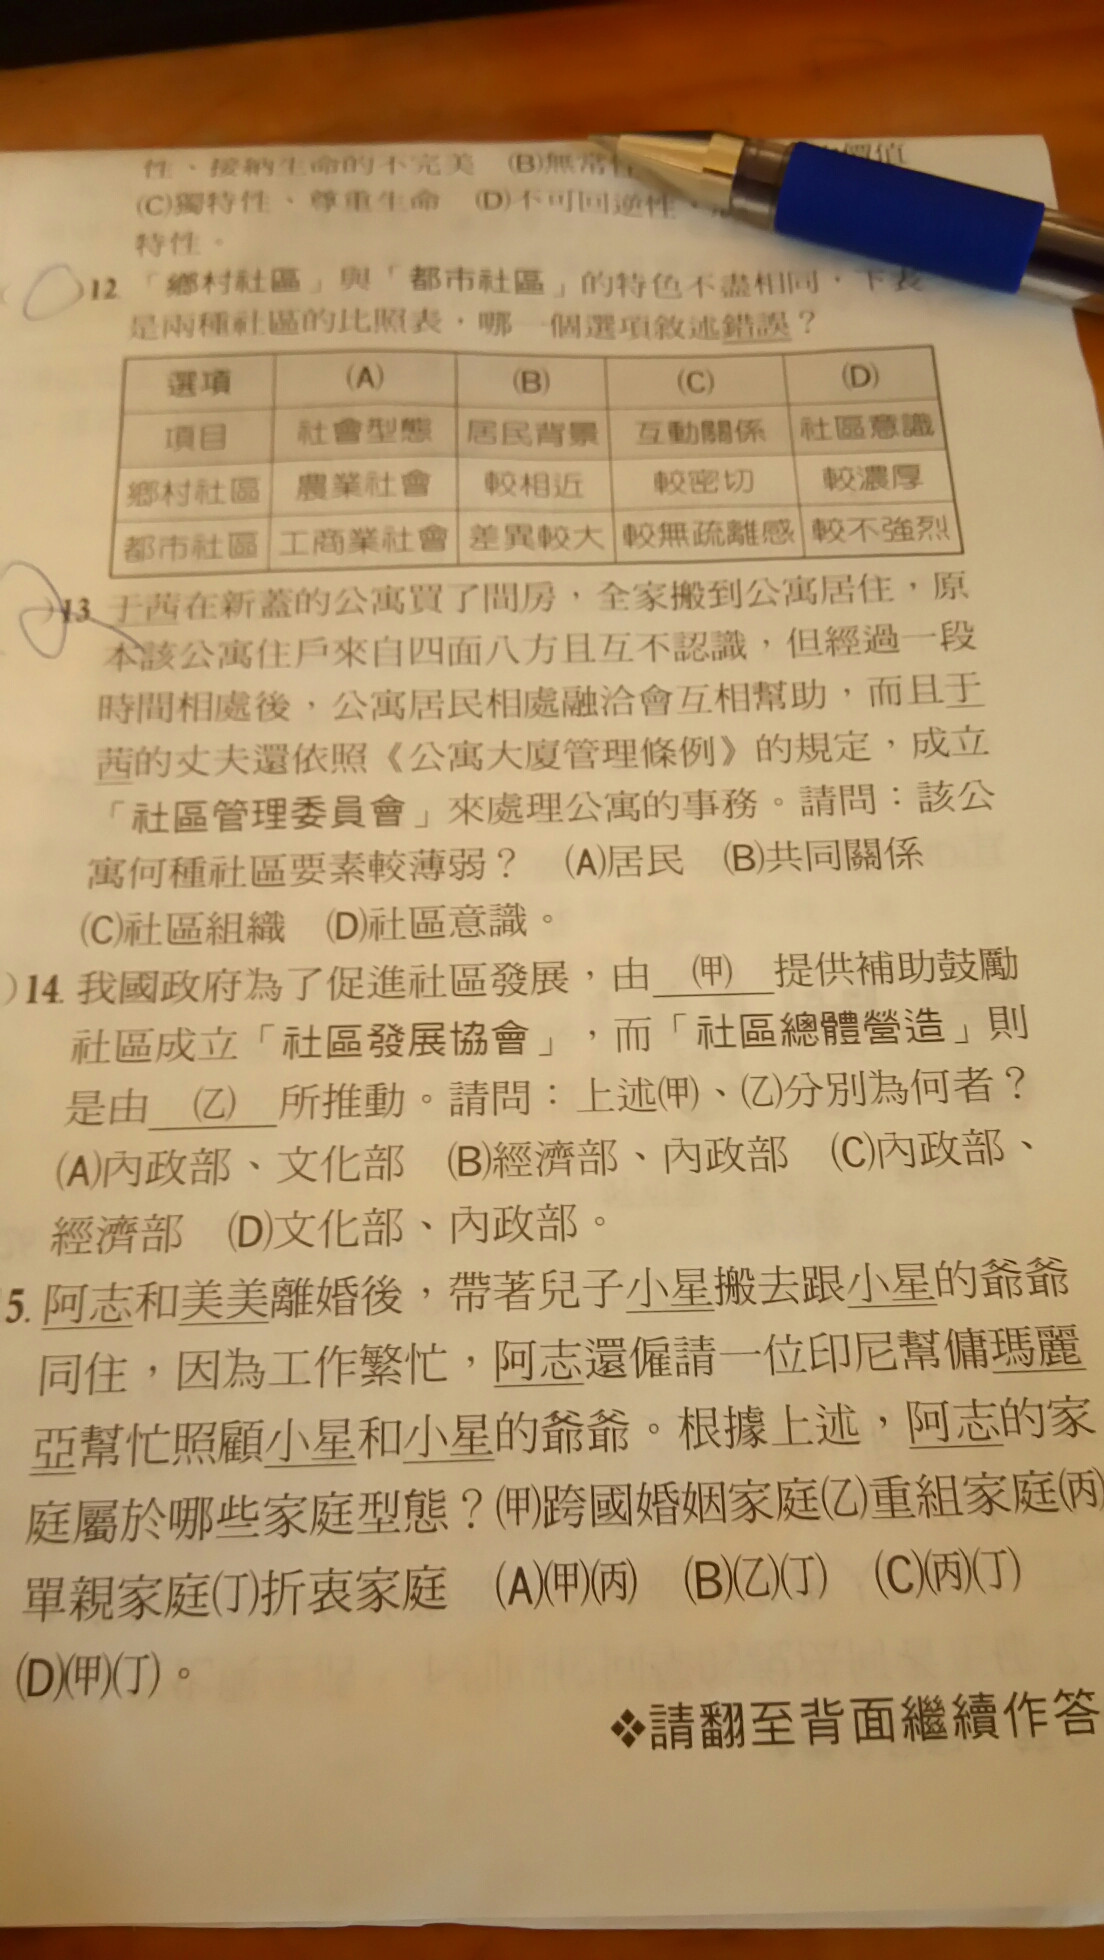 性、接納生命的不完美 (B)無常性 價值
(C)獨特性、尊重生命 (D)不可回逆性、
特性。
)12. 「鄉村社區」與「都市社區」的特色不盡相同,下表
是兩種社區的比照表,哪一個選項敘述錯誤?
選項 (A) (B) (C) (D)
項目 社會型態 居民背景 互動關係 社區意識
鄉村社區 農業社會 較相近 較密切 較濃厚
都市社區 工商業社會 差異較大 較無疏離感 較不強烈
)13. 于茜在新蓋的公寓買了間房,全家搬到公寓居住,原
本該公寓住戶來自四面八方且互不認識,但經過一段
時間相處後,公寓居民相處融洽會互相幫助,而且于
茜的丈夫還依照《公寓大廈管理條例》的規定,成立
「社區管理委員會」來處理公寓的事務。請問:該公
寓何種社區要素較薄弱? (A)居民 (B)共同關係
(C)社區組織 (D)社區意識。
)14. 我國政府為了促進社區發展,由 (甲) 提供補助鼓勵
社區成立「社區發展協會」,而「社區總體營造」則
是由 (乙) 所推動。請問:上述(甲)、(乙)分別為何者?
(A)內政部、文化部 (B)經濟部、內政部 (C)內政部、
經濟部 (D)文化部、內政部。
5. 阿志和美美離婚後,帶著兒子小星搬去跟小星的爺爺
同住,因為工作繁忙,阿志還僱請一位印尼幫傭瑪麗
亞幫忙照顧小星和小星的爺爺。根據上述,阿志的家
庭屬於哪些家庭型態?(甲)跨國婚姻家庭(乙)重組家庭(丙)
單親家庭(丁)折衷家庭 (A)(甲)(丙) (B)(乙)(丁) (C)(丙)(丁)
(D)(甲)(丁)。
❖請翻至背面繼續作答